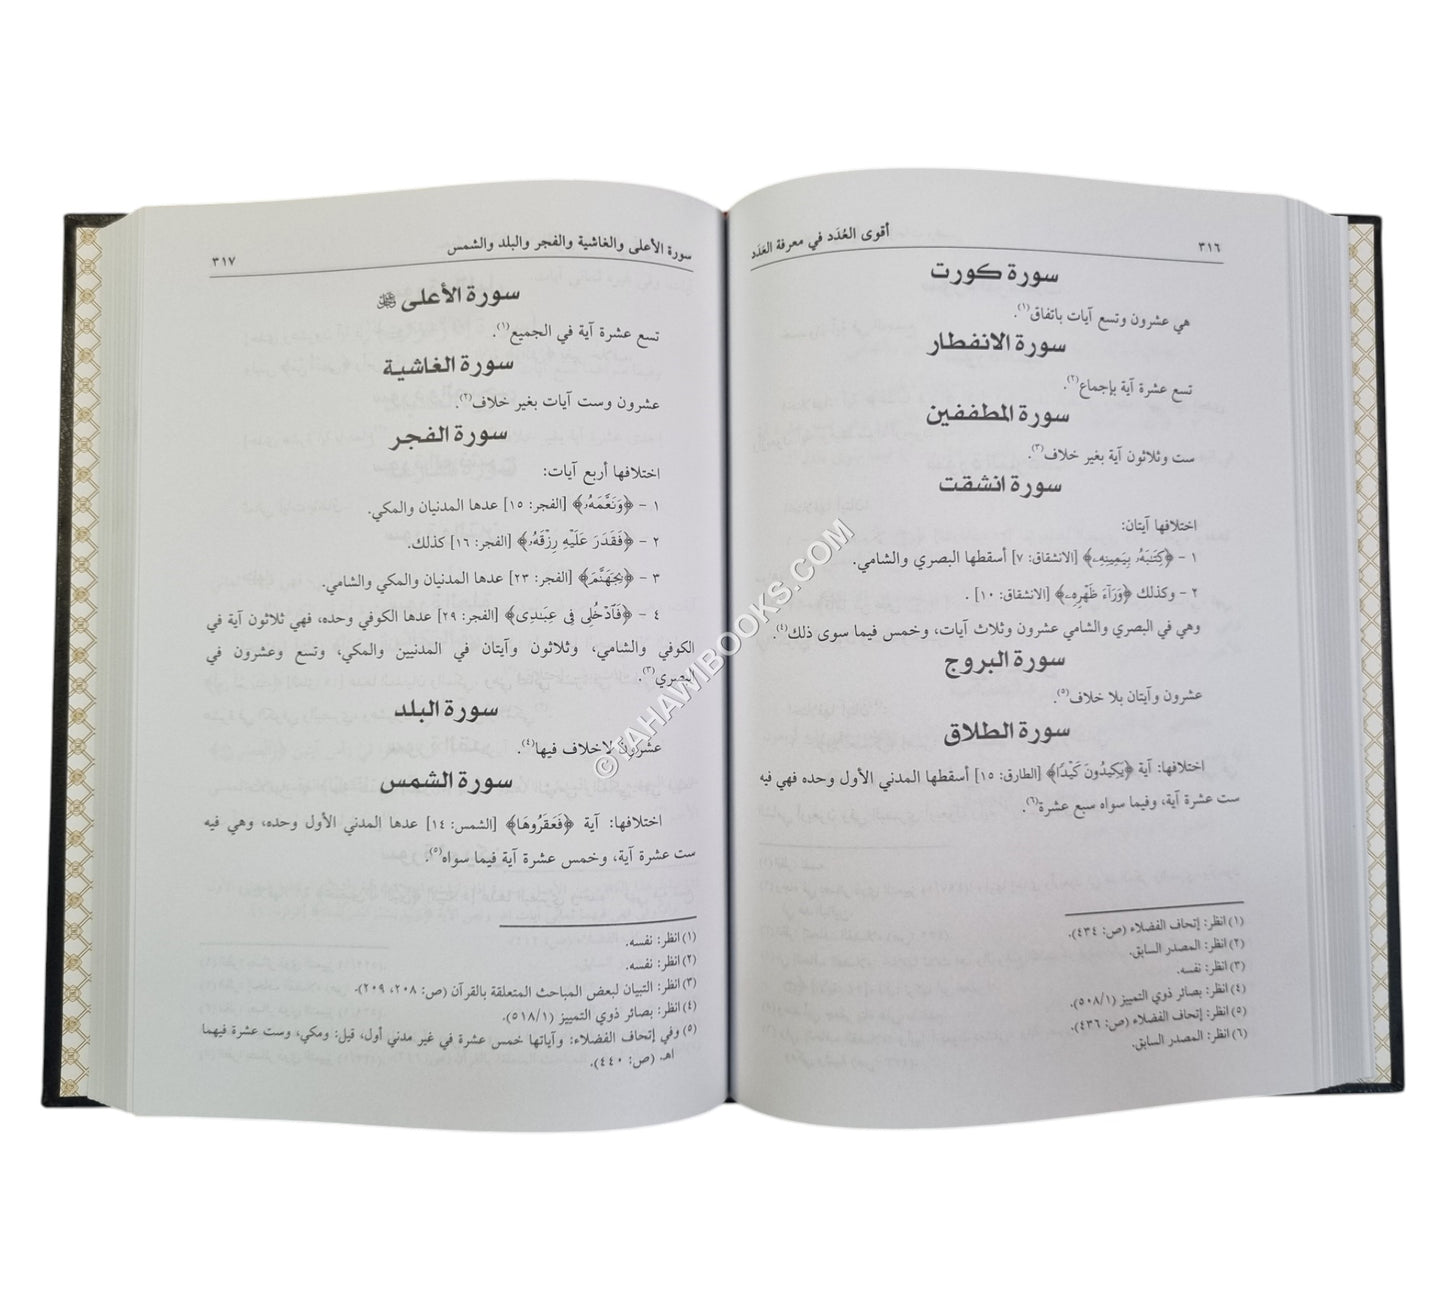 ٣١٦
أقوى العُدَد في معرفة العَدَد
سورة كورت
هي عشرون وتسع آيات باتفاق(١).
سورة الانفطار
تسع عشرة آية بإجماع(٢).
سورة المطففين
ست وثلاثون آية بغير خلاف(٣).
سورة انشقت
اختلافها آيتان:
١ - ﴿كِتَٰبَهُۥ بِيَمِينِهِۦ﴾ [الانشقاق: ٧] أسقطها البصري والشامي.
٢ - وكذلك ﴿وَرَآءَ ظَهْرِهِۦ﴾ [الانشقاق: ١٠] .
وهي في البصري والشامي عشرون وثلاث آيات، وخمس فيما سوى ذلك(٤).
سورة البروج
عشرون وآيتان بلا خلاف(٥).
سورة الطلاق
اختلافها: آية ﴿يَكِيدُونَ كَيْدًا﴾ [الطارق: ١٥] أسقطها المدني الأول وحده فهي فيه
ست عشرة آية، وفيما سواه سبع عشرة(٦).
(١) انظر: إتحاف الفضلاء (ص: ٤٣٤).
(٢) انظر: المصدر السابق.
(٣) انظر: نفسه.
(٤) انظر: بصائر ذوي التمييز (٥٠٨/١).
(٥) انظر: إتحاف الفضلاء (ص: ٤٣٦).
(٦) انظر: المصدر السابق.
سورة الأعلى والغاشية والفجر والبلد والشمس
٣١٧
سورة الأعلى ﷻ
تسع عشرة آية في الجميع(١).
سورة الغاشية
عشرون وست آيات بغير خلاف(٢).
سورة الفجر
اختلافها أربع آيات:
١ - ﴿وَنَعَّمَهُۥ﴾ [الفجر: ١٥] عدها المدنيان والمكي.
٢ - ﴿فَقَدَرَ عَلَيْهِ رِزْقَهُۥ﴾ [الفجر: ١٦] كذلك.
٣ - ﴿بِجَهَنَّمَ﴾ [الفجر: ٢٣] عدها المدنيان والمكي والشامي.
٤ - ﴿فَٱدْخُلِى فِى عِبَٰدِى﴾ [الفجر: ٢٩] عدها الكوفي وحده، فهي ثلاثون آية في
الكوفي والشامي، وثلاثون وآيتان في المدنيين والمكي، وتسع وعشرون في
البصري(٣).
سورة البلد
عشرون لاخلاف فيها(٤).
سورة الشمس
اختلافها: آية ﴿فَعَقَرُوهَا﴾ [الشمس: ١٤] عدها المدني الأول وحده، وهي فيه
ست عشرة آية، وخمس عشرة آية فيما سواه(٥).
(١) انظر: نفسه.
(٢) انظر: نفسه.
(٣) انظر: التبيان لبعض المباحث المتعلقة بالقرآن (ص: ٢٠٨، ٢٠٩).
(٤) انظر: بصائر ذوي التمييز (٥١٨/١).
(٥) وفي إتحاف الفضلاء: وآياتها خمس عشرة في غير مدني أول، قيل: ومكي، وست عشرة فيهما
اهـ. (ص: ٤٤٠).
©TAHAWIBOOKS.COM